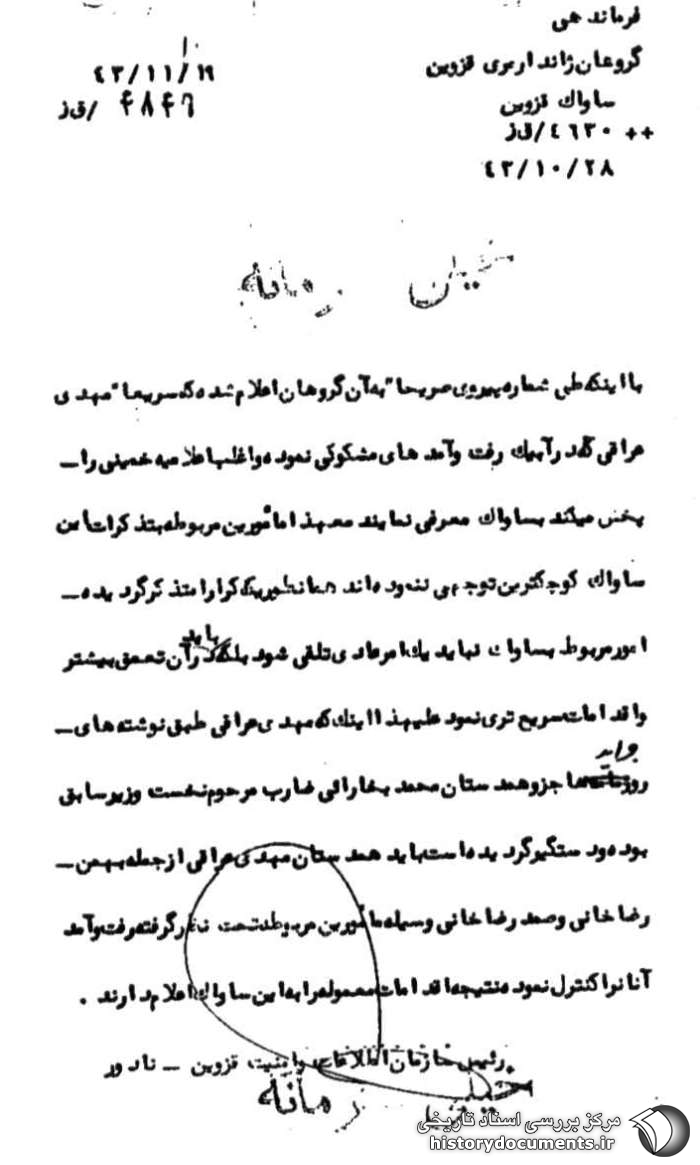 فرماندهی
گروهان ژاندارمری قزوین
ساواك قزوین
++ ٤٦٣٠/ق‌ز
٤٣/١٠/٢٨
١٠
٤٣/١١/١٩
۴۸۴٦ /ق‌ز
خیلی محرمانه
با اینکه طی شماره پیروی صریحا" به آن گروهان اعلام شده که سریعا" مهدی
عراقی که در آبیك رفت وآمد های مشکوکی نموده و اغلب اعلامیه خمینی را ـ
پخش میکند بساواك معرفی نمایند معهذا مأمورین مربوطه بتذکرات این
ساواك کوچکترین توجهی ننموده اند همانطوریکه کرارا متذکر گردیده ـ
امور مربوط بساواك نباید یك امر عادی تلقی شود بلکه باید در آن تعمق بیشتر
و اقدامات سریع تری نمود علیهذا اینك که مهدی عراقی طبق نوشته های ـ
جراید
روزنامه ها جزو همدستان محمد بخارائی ضارب مرحوم نخست وزیر سابق
بوده و دستگیر گردیده است باید همدستان مهدی عراقی از جمله بهمن ـ
رضاخانی وصمد رضاخانی وسیله مأمورین مربوطه تحت نظر گرفته رفت وآمد
آنانرا کنترل نموده نتیجه اقدامات معموله را به این ساواك اعلام دارند .
رئیس سازمان اطلاعات وامنیت قزوین ـ نادور
خیلی محرمانه
مرکز بررسی اسناد تاریخی
historydocuments.ir